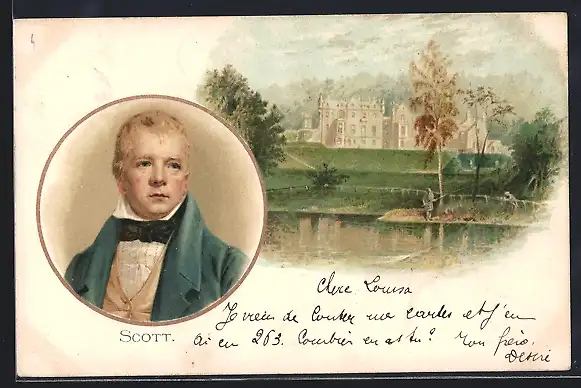 SCOTT.
Chère Louisa
Je viens de compter mes cartes et j'en
ai en 263. Combien en as tu? Ton frère.
Désiré